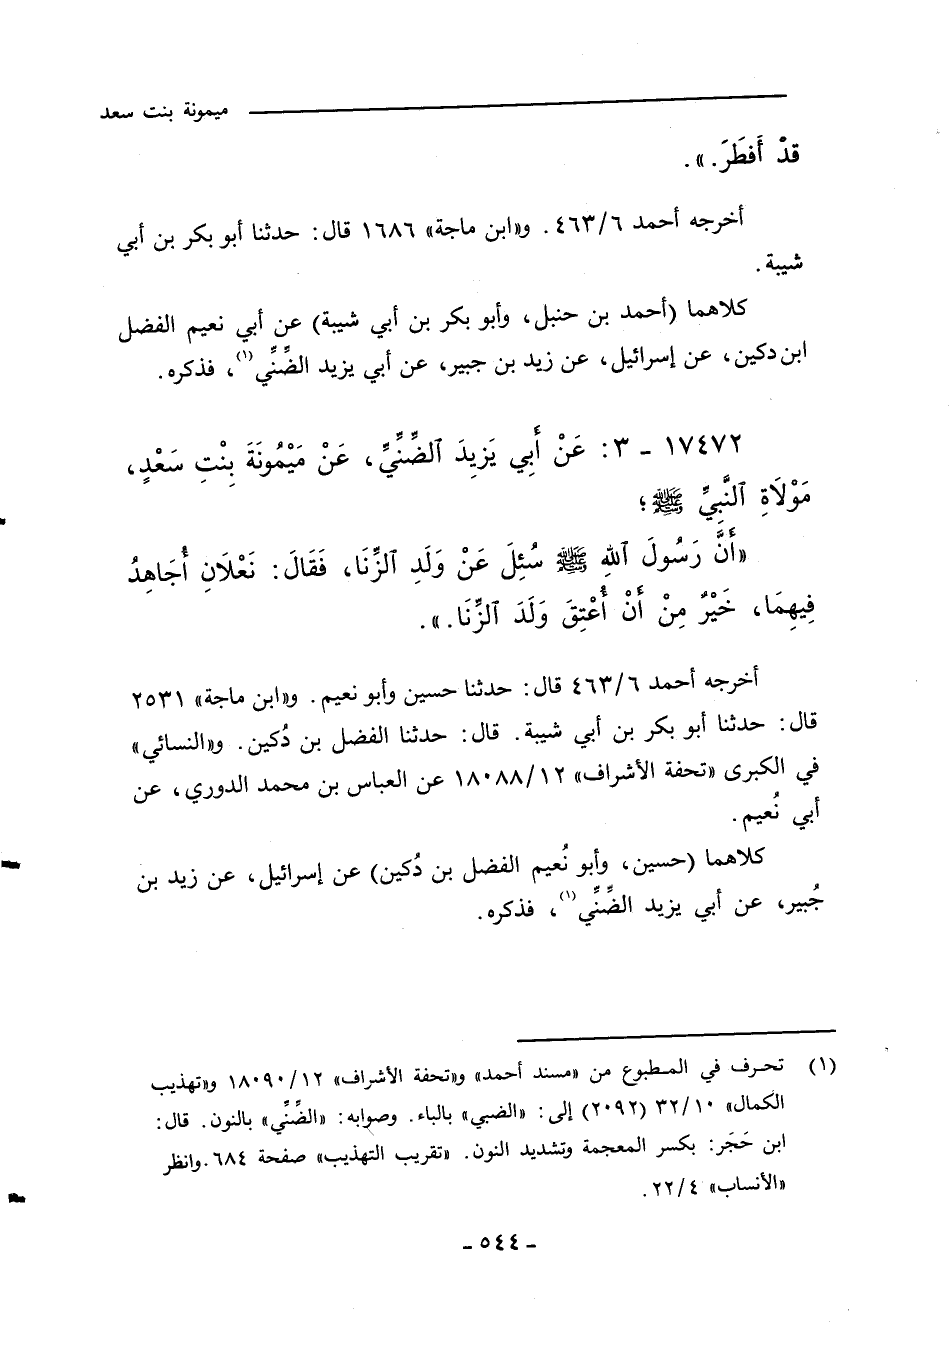 ميمونة بنت سعد
قَدْ أَفْطَرَ.».
أخرجه أحمد ٤٦٣/٦. و«ابن ماجة» ١٦٨٦ قال: حدثنا أبو بكر بن أبي
شيبة.
كلاهما (أحمد بن حنبل، وأبو بكر بن أبي شيبة) عن أبي نعيم الفضل
ابن دكين، عن إسرائيل، عن زيد بن جبير، عن أبي يزيد الضِّنِّي(١)، فذكره.
١٧٤٧٢ - ٣: عَنْ أَبِي يَزِيدَ ٱلضِّنِّيِّ، عَنْ مَيْمُونَةَ بِنْتِ سَعْدٍ،
مَوْلَاةِ ٱلنَّبِيِّ ﷺ؛
«أَنَّ رَسُولَ ٱللهِ ﷺ سُئِلَ عَنْ وَلَدِ ٱلزِّنَا، فَقَالَ: نَعْلَانِ أُجَاهِدُ
فِيهِمَا، خَيْرٌ مِنْ أَنْ أُعْتِقَ وَلَدَ ٱلزِّنَا.».
أخرجه أحمد ٤٦٣/٦ قال: حدثنا حسين وأبو نعيم. و«ابن ماجة» ٢٥٣١
قال: حدثنا أبو بكر بن أبي شيبة. قال: حدثنا الفضل بن دُكين. و«النسائي»
في الكبرى «تحفة الأشراف» ١٨٠٨٨/١٢ عن العباس بن محمد الدوري، عن
أبي نُعيم.
كلاهما (حسين، وأبو نُعيم الفضل بن دُكين) عن إسرائيل، عن زيد بن
جُبير، عن أبي يزيد الضِّنِّي(١)، فذكره.
(١) تحرف في المطبوع من «مسند أحمد» و«تحفة الأشراف» ١٨٠٩٠/١٢ و«تهذيب
الكمال» ٣٢/١٠ (٢٠٩٢) إلى: «الضبي» بالباء. وصوابه: «الضِّنِّي» بالنون. قال:
ابن حَجَر: بكسر المعجمة وتشديد النون. «تقريب التهذيب» صفحة ٦٨٤.وانظر
«الأنساب» ٢٢/٤.
- ٥٤٤ -